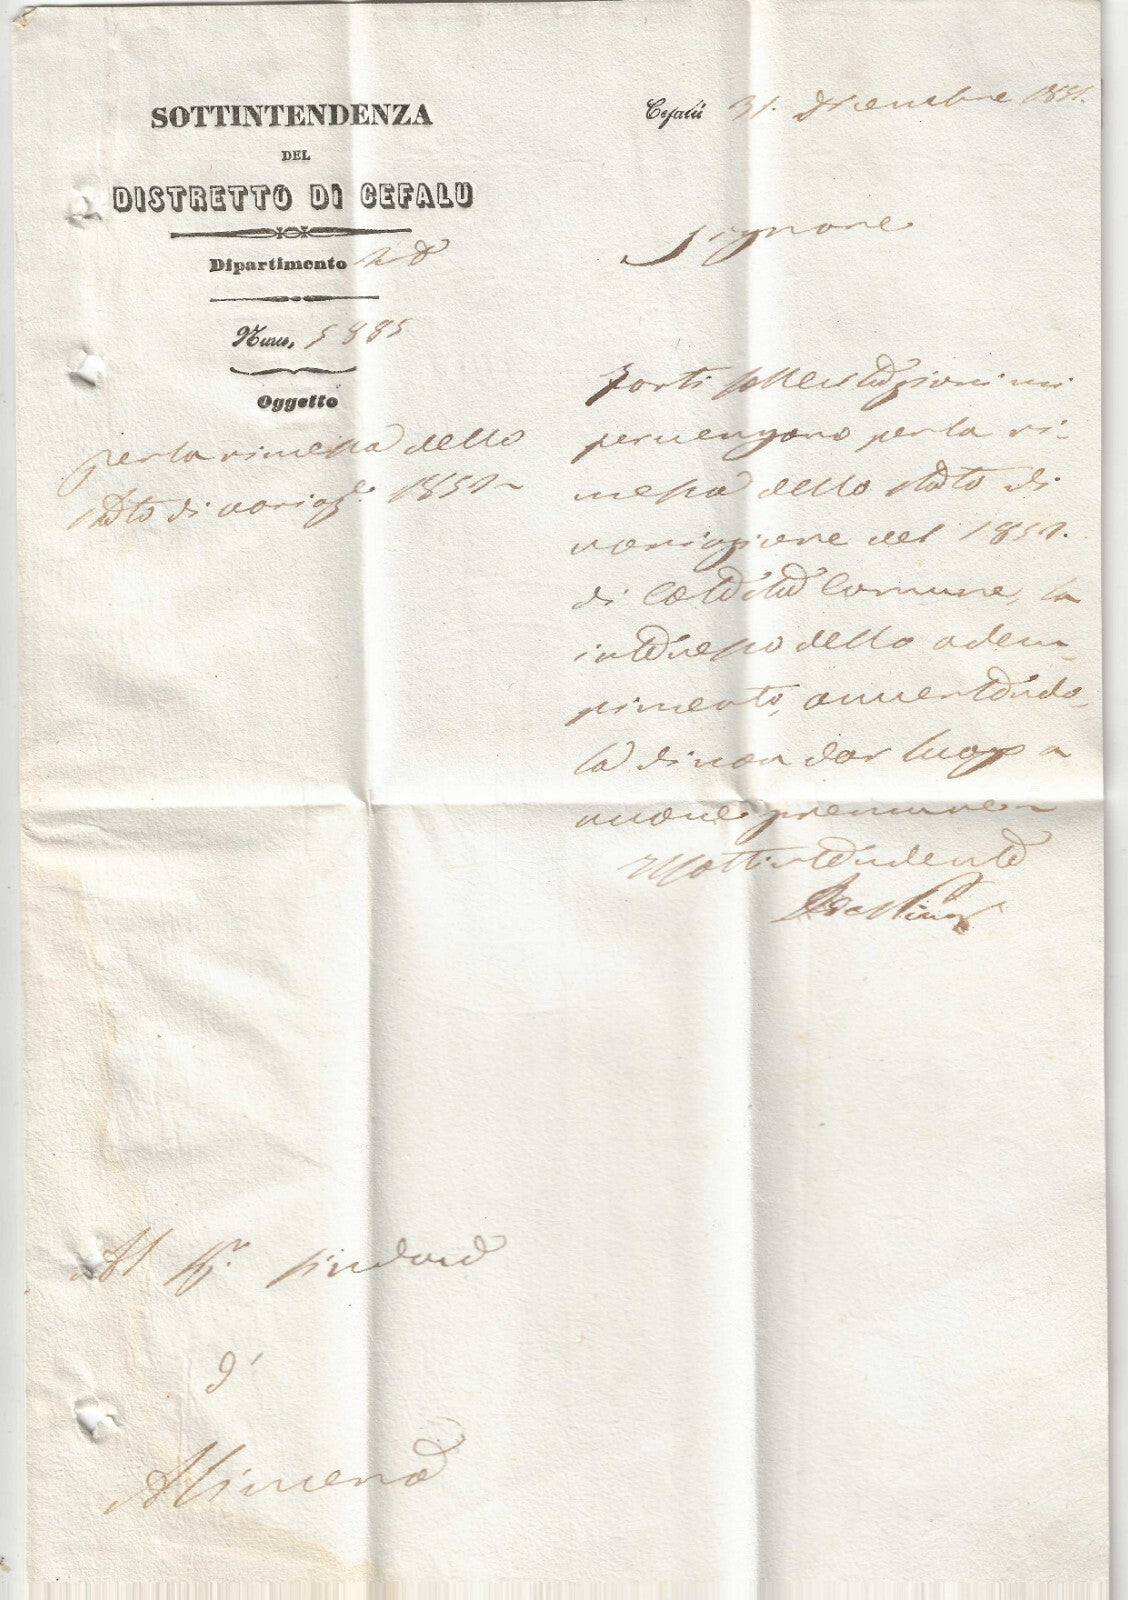 SOTTINTENDENZA
DEL
DISTRETTO DI CEFALU
Dipartimento 2°
Num. 5885
Oggetto
per la rimessa dello
stato di variaz.e 1851
Cefalù 31. Dicembre 1851.
Signore
Forti sollecitazioni mi
pervengono per la ri-
messa dello stato di
variazione del 1851.
di Cotesta Comune, la
interesso dello adem-
pimento, avvertendo-
la di non dar luogo a
nuove premure
Il Sottintendente
Al Sig.r Sindaco
d'
Alimena